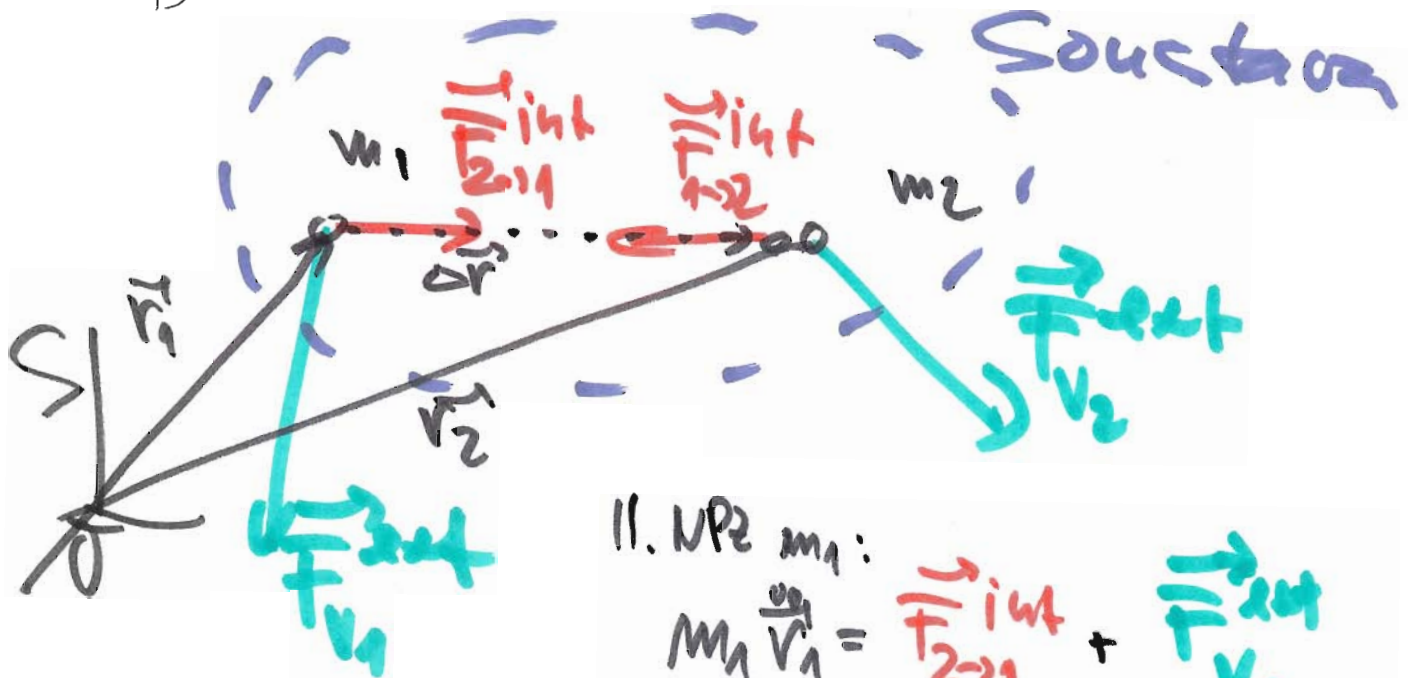 Soustava
m₁ F⃗ int 2→1 F⃗ int 1→2 m₂
Δr⃗
S r⃗₁ r⃗₂
F⃗ ext V₂
O F⃗ ext V₁
II. NPZ m₁:
m₁ r̈⃗₁ = F⃗ int 2→1 + F⃗ ext